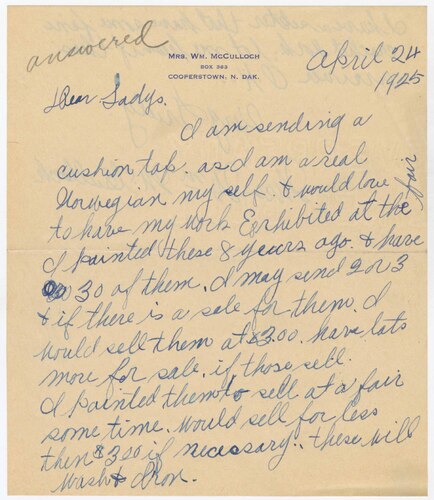 answered
MRS. WM. McCULLOCH
BOX 363
COOPERSTOWN, N. DAK.
April 24
1925
Dear Ladys.
I am sending a
cushion top. as I am a real
Norwegian my self. & would love
to have my work Exhibited at the fair
I painted these 8 years ago. & have
30 of them. I may send 2 or 3
& if there is a sale for them. I
would sell them at $3.00. have lots
more for sale. if those sell.
I painted them to sell at a fair
some time. Would sell for less
then $3.00 if necessary.. these will
Wash & Iron.